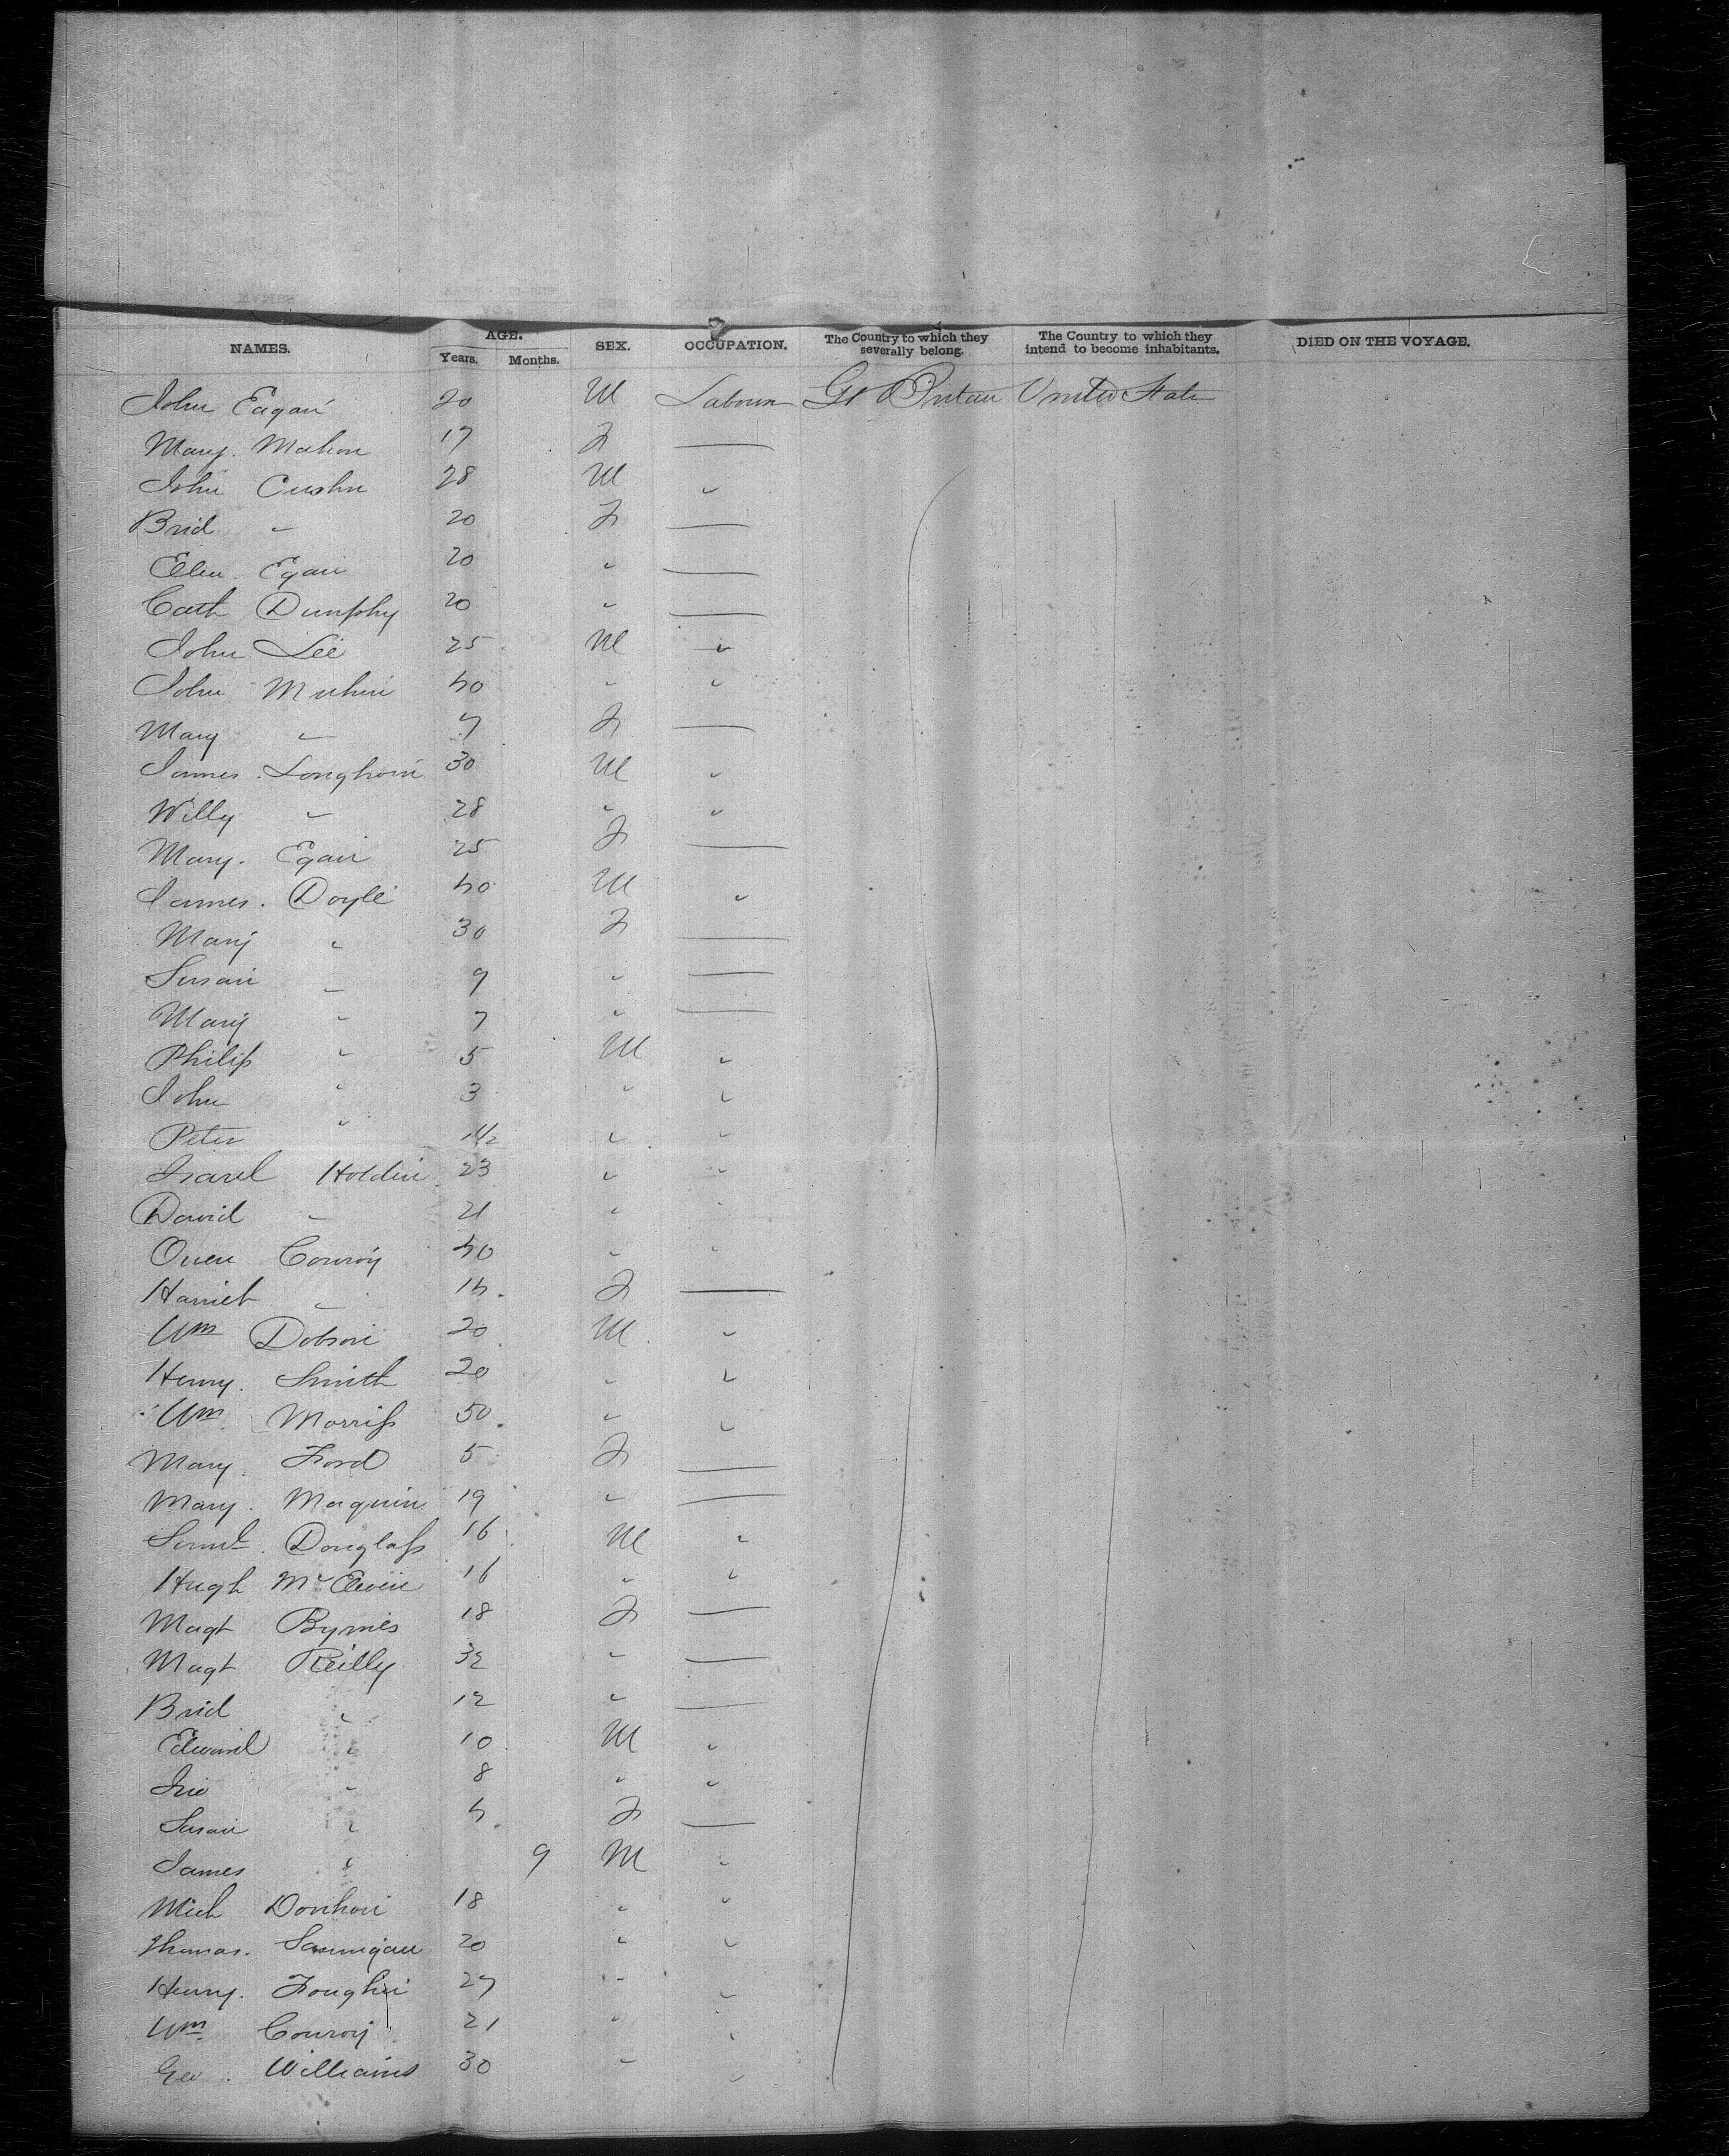 NAMES. AGE. Years. Months. SEX. OCCUPATION. The Country to which they severally belong. The Country to which they intend to become inhabitants. DIED ON THE VOYAGE.
John Eagan 20 M Labourer Gt Britain United States
Mary. Mahon 17 F —
John 28 M "
Brid " 20 F —
Ellen. Egan 20 " —
Cath Dunphy 20 " —
John Lee 25 M "
John 40 " "
Mary " 7 F —
James. 30 M "
Willy " 28 " "
Mary. Egan 25 F —
James. Doyle 40 M "
Mary " 30 F —
Susan " 9 " —
Mary " 7 " —
Philip " 5 M "
John " 3 " "
Peter " 1 1/2 " "
Isarel Holden 23 " "
David " 21 " "
Owen Conroy 40 " "
Harriet " 14 F —
Wm Dobson 20 M "
Henry. Smith 20 " "
Wm Morriss 50 " "
Mary. Ford 5 F —
Mary. Maquin 19 " —
Saml. Douglass 16 M "
Hugh 16 " "
Magt Byrnes 18 F —
Magt Reilly 32 " —
Brid " 12 " —
Edward " 10 M "
Jno " 8 " "
Susan " 4 F —
James " 9 M "
Mich 18 " "
Thomas. 20 " "
Henry. 27 " "
Wm Conroy 21 " "
Geo. Williams 30 " "